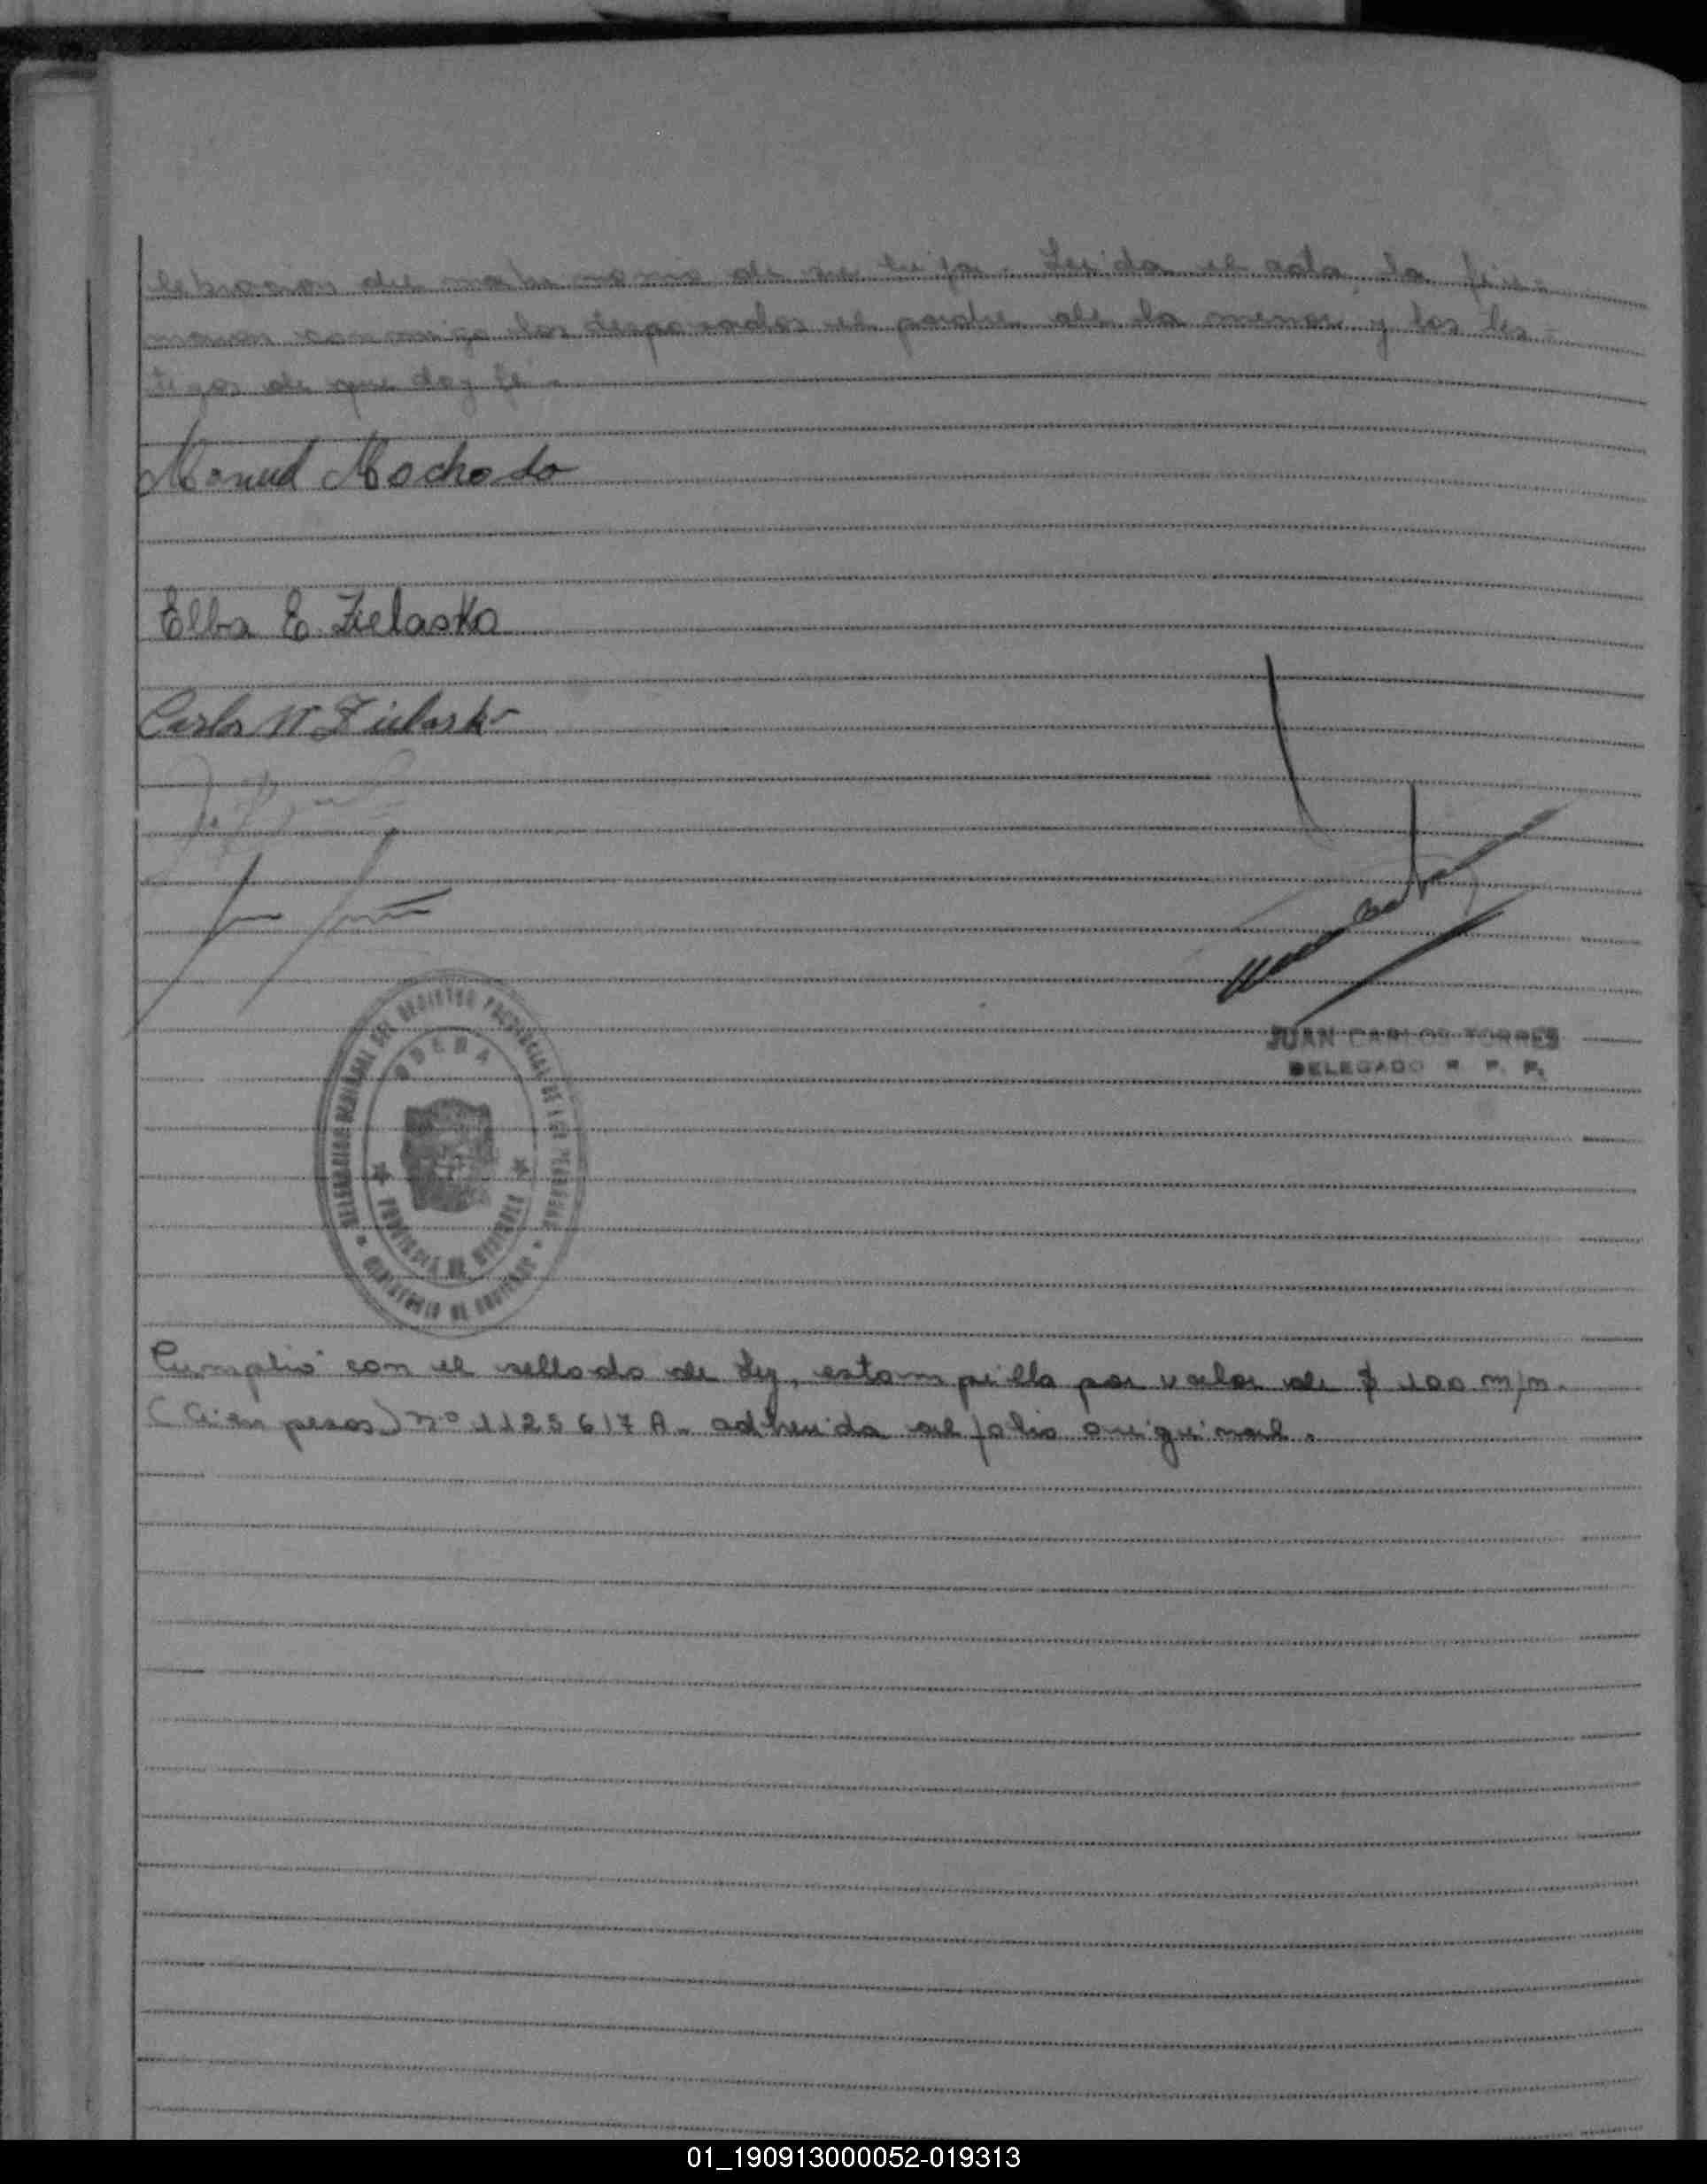 lebración del matrimonio de su hija. Leída el acta, la fir-
maron conmigo los desposados el padre de la menor y los tes-
tigos de que doy fe.
Manuel Machado
Elba E. Zielasko
Carlos W Zielasko
JUAN CARLOS TORRES
DELEGADO R. P. P.
DELEGACION DEL REGISTRO PROVINCIAL DE LAS PERSONAS
OBERA
PROVINCIA DE MISIONES
MINISTERIO DE GOBIERNO
Cumplió con el sellado de Ley, estampilla por valor de $ 100 m/n.
(Cien pesos) nº 1125617 A. adherida al folio original.
01_190913000052-019313